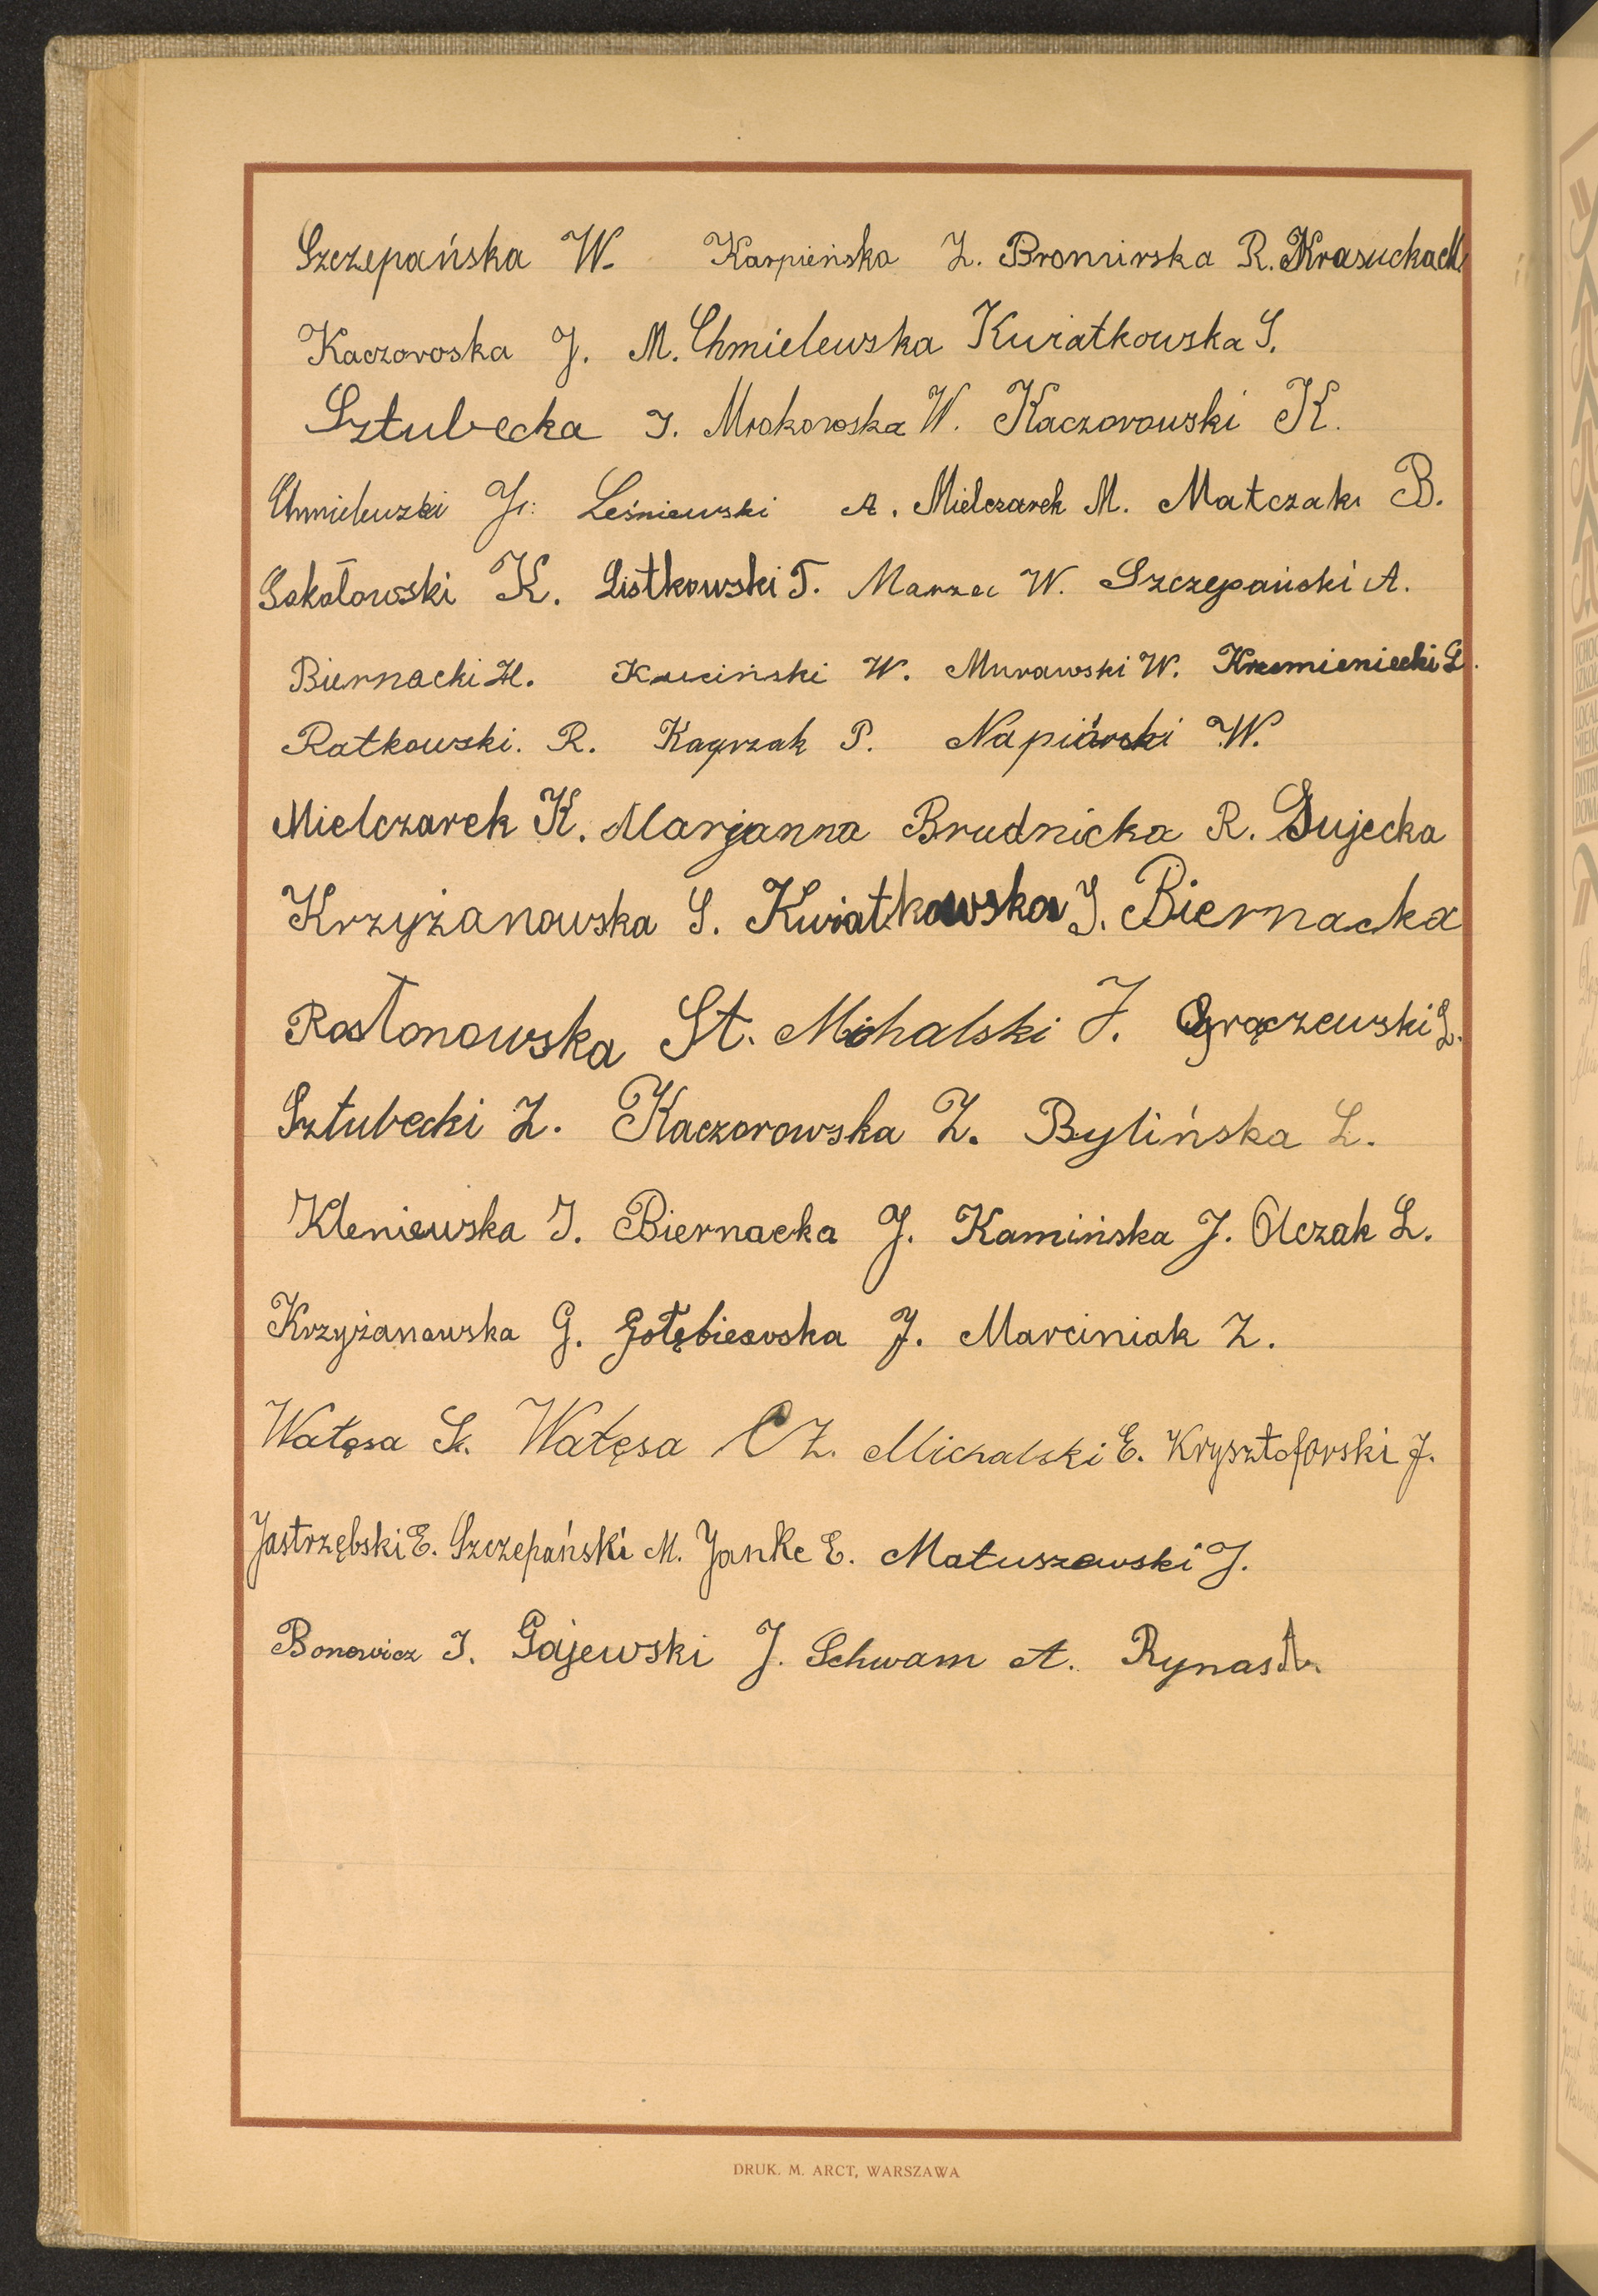 Szczepańska W. Karpieńska Z. Bromirska R. Krasucka M.
Kaczorowska J. M. Chmielewska Kwiatkowska S.
Sztubecka I. Mrokowska W. Kaczorowski K.
Chmielewski J. Leśniewski A. Mielczarek M. Matczak B.
Sokołowski K. Listkowski T. Marzec W. Szczepański A.
Biernacki H. Kuciński W. Murawski W. Krzemieniecki L.
Ratkowski. R. Kacprzak P. Napiórski W.
Mielczarek K. Marjanna Brudnicka R. Sujecka
Krzyżanowska S. Kwiatkowska I. Biernacka
Rostonowska St. Mihalski J. Grączewski L.
Sztubecki Z. Kaczorowska Z. Bylińska L.
Kleniewska I. Biernacka J. Kamińska J. Olczak L.
Krzyżanowska G. Gołębiewska J. Marciniak Z.
Wałęsa S. Wałęsa CZ. Michalski E. Krysztoforski J.
Jastrzębski E. Szczepański M. Janke E. Matuszewski J.
Bonowicz I. Gajewski J. Schwam A. Rynas A.
DRUK. M. ARCT, WARSZAWA